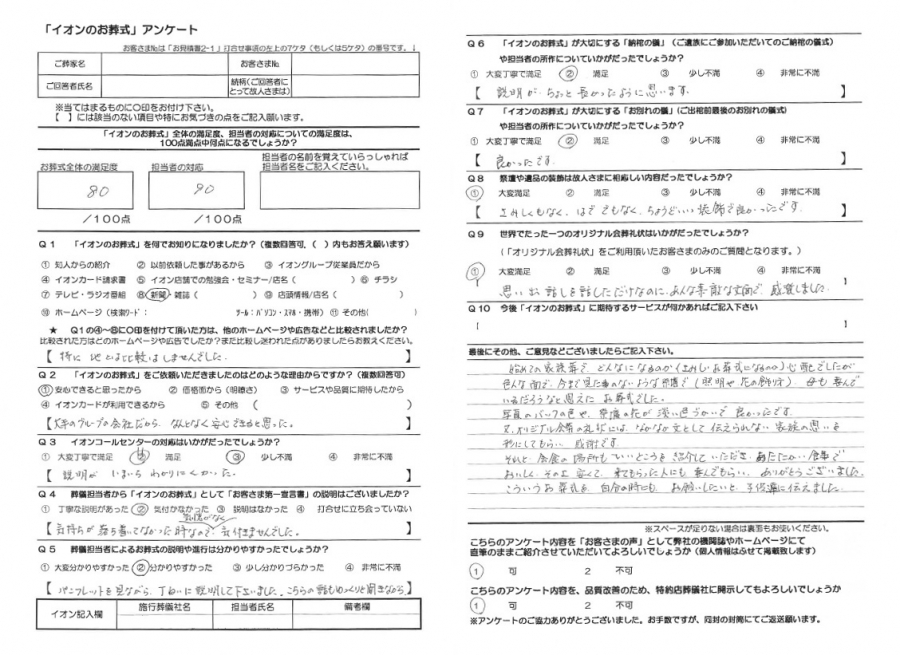 「イオンのお葬式」アンケート
お客さま№は「お見積書2-1」打合せ事項の左上の7ケタ(もしくは5ケタ)の番号です。↓
ご葬家名 お客さま№
ご回答者氏名 続柄(ご回答者にとって故人さまは)
※当てはまるものに〇印をお付け下さい。
【 】には該当のない項目や特にお気づきの点をご記入願います。
「イオンのお葬式」全体の満足度、担当者の対応についての満足度は、
100点満点中何点になるでしょうか?
お葬式全体の満足度 担当者の対応 担当者の名前を覚えていらっしゃれば担当者名をご記入ください。
80 90
/100点 /100点
Q1 「イオンのお葬式」を何でお知りになりましたか?(複数回答可、( )内もお答え願います)
① 知人からの紹介 ② 以前依頼した事があるから ③ イオングループ従業員だから
④ イオンカード請求書 ⑤ イオン店舗での勉強会・セミナー/店名( ) ⑥ チラシ
⑦ テレビ・ラジオ番組 ⑧ 新聞・雑誌( ) ⑨ 店頭情報/店名( )
⑩ ホームページ(検索ワード: ツール:パソコン・スマホ・携帯) ⑪ その他( )
★ Q1の④~⑩に〇印を付けて頂いた方は、他のホームページや広告などと比較されましたか?
比較された方はどのホームページや広告でしたか?また比較し迷われた点がありましたらお教えください。
【 特に 他とは比較はしませんでした。 】
Q2 「イオンのお葬式」をご依頼いただきましたのはどのような理由からですか?(複数回答可)
① 安心できると思ったから ② 価格面から(明瞭さ) ③ サービスや品質に期待したから
④ イオンカードが利用できるから ⑤ その他( )
【 大手のグループの会社だから、なんとなく安心できると思った。 】
Q3 イオンコールセンターの対応はいかがだったでしょうか?
① 大変丁寧で満足 ② 満足 ③ 少し不満 ④ 非常に不満
【 説明が いまいち わかりにくかった。 】
Q4 葬儀担当者から「イオンのお葬式」として「お客さま第一宣言書」の説明はございましたか?
① 丁寧な説明があった ② 気付かなかった ③ 説明はなかった ④ 打合せに立ち会っていない
【 気持ちが 落ち着いてなかった時なので、気付きませんでした。 】
Q5 葬儀担当者によるお葬式の説明や進行は分かりやすかったでしょうか?
① 大変分かりやすかった ② 分かりやすかった ③ 少し分かりづらかった ④ 非常に不満
【 パンフレットを見ながら、丁ねいに説明して下さいました。こちらの話もゆっくりと聞きながら 】
イオン記入欄 施行葬儀社名 担当者氏名 備考欄
Q6 「イオンのお葬式」が大切にする「納棺の儀」(ご遺族にご参加いただいてのご納棺の儀式)
や担当者の所作についていかがだったでしょうか?
① 大変丁寧で満足 ② 満足 ③ 少し不満 ④ 非常に不満
【 説明が、ちょっと長かったように思います。 】
Q7 「イオンのお葬式」が大切にする「お別れの儀」(ご出棺前最後のお別れの儀式)
や担当者の所作についていかがだったでしょうか?
① 大変丁寧で満足 ② 満足 ③ 少し不満 ④ 非常に不満
【 良かったです。 】
Q8 祭壇や遺品の装飾は故人さまに相応しい内容だったでしょうか?
① 大変満足 ② 満足 ③ 少し不満 ④ 非常に不満
【 さみしくもなく、はででもなく、ちょうどいい装飾で良かったです。 】
Q9 世界でたった一つのオリジナル会葬礼状はいかがだったでしょうか?
(「オリジナル会葬礼状」をご利用頂いたお客さまのみのご質問となります。)
① 大変満足 ② 満足 ③ 少し不満 ④ 非常に不満
【 思い出話しを話しただけなのに、あんな素敵な文面で 感激しました。 】
Q10 今後「イオンのお葬式」に期待するサービスが何かあればご記入下さい
【 】
最後にその他、ご意見などございましたらご記入下さい。
始めての家族葬で、どんなになるのか(さみしいお葬式になるのか)心配でしたが
色んな面で、今まで見た事のないような祭壇で(照明や花の飾り方)、母も喜んで
いるだろうなと思えた お葬式でした。
写真のバックの色や、祭壇の花が 淡い色づかいで 良かったです。
又、オリジナル会葬の礼状には、なかなか文として伝えられない 家族の思いを
形にしてもらい 感謝です。
それと、会食の場所もいいところを紹介していただき、あたたかい食事で
おいしく、その上 安くて、来てもらった人にも 喜んでもらい、ありがとうございました。
こういうお葬式を 自分の時にも お願いしたいと、子供達に伝えました。
※スペースが足りない場合は裏面もお使いください。
こちらのアンケート内容を「お客さまの声」として弊社の機関誌やホームページにて
直筆のままご紹介させていただいてよろしいでしょうか(個人情報はふせて掲載致します)
1 可 2 不可
こちらのアンケート内容を、品質改善のため、特約店葬儀社に開示してもよろしいでしょうか
1 可 2 不可
※アンケートのご協力ありがとうございました。お手数ですが、同封の封筒にてご返送願います。